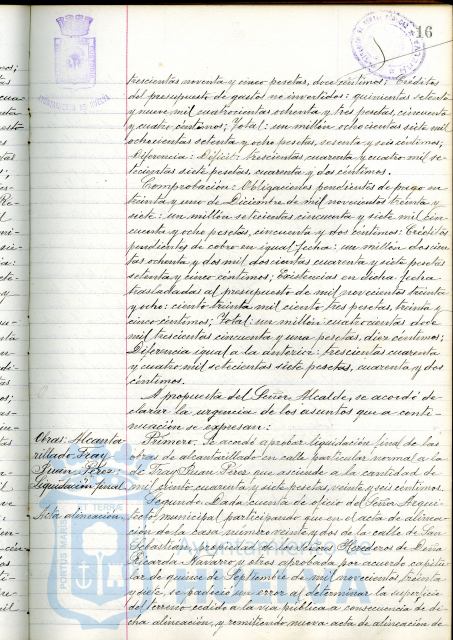 16
trescientas noventa y cinco pesetas, doce céntimos; Créditos
del presupuesto de gastos no invertidos: quinientas setenta
y nueve mil cuatrocientas ochenta y tres pesetas, cincuenta
y cuatro céntimos; Total: un millón ochocientas siete mil
ochocientas setenta y ocho pesetas, sesenta y seis céntimos;
Diferencia: Déficit: trescientas cuarenta y cuatro mil se-
tecientas siete pesetas, cuarenta y dos céntimos.
Comprobación: Obligaciones pendientes de pago en
treinta y uno de Diciembre de mil novecientos treinta y
siete: un millón setecientas cincuenta y siete mil cin-
cuenta y ocho pesetas, cincuenta y dos céntimos: Créditos
pendientes de cobro en igual fecha: un millón doscien-
tas ochenta y dos mil doscientas cuarenta y siete pesetas
setenta y cinco céntimos; Existencias en dicha fecha
trasladadas al presupuesto de mil novecientos treinta
y ocho: ciento treinta mil ciento tres pesetas, treinta y
cinco céntimos; Total: un millón cuatrocientas doce
mil trescientas cincuenta y una pesetas, diez céntimos;
Diferencia igual a la anterior: trescientas cuarenta
y cuatro mil setecientas siete pesetas, cuarenta y dos
céntimos.
A propuesta del Señor Alcalde, se acordó de-
clarar la urgencia de los asuntos que a conti-
nuación se expresan:
Obras: Alcanta-
rillado Fray
Juan Pérez:
Liquidación final
Primero: Se acordó aprobar liquidación final de las
obras de alcantarillado en calle particular normal a la
de Fray Juan Pérez que asciende a la cantidad de
mil ciento cuarenta y siete pesetas, veinte y seis céntimos.
Acta alineación.
Segundo: Dada cuenta de oficio del Señor Arqui-
tecto municipal participando que en el acta de alinea-
ción de la casa número veinte y dos de la calle de San
Sebastián, propiedad de los Señores Herederos de Doña
Ricarda Navarro y otros aprobada por acuerdo capitu-
lar de quince de Septiembre de mil novecientos treinta
y siete, se padeció un error al determinar la superficie
del terreno cedido a la vía pública a consecuencia de di-
cha alineación, y remitiendo nueva acta de alineación de